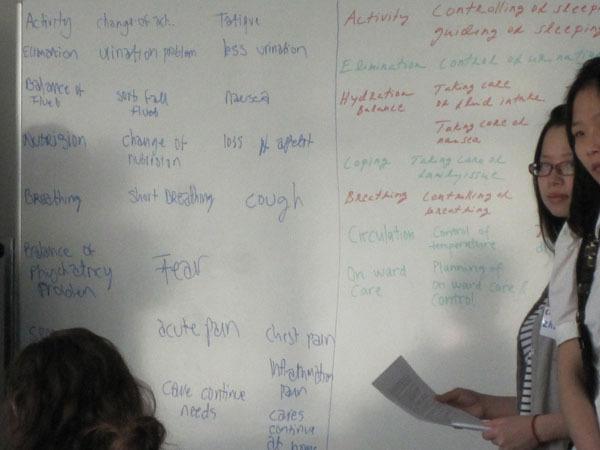 Activity change of act.. Fatique
Elimination urination problem less urination
Balance of nausea
Nutrision change of nutrision loss of
Breathing short Breathing cough
Balance of Problem Fear
acute pain chest pain
pain
Care continue needs cares continue at home
Activity Controlling of sleeping
guiding of sleeping
Elimination Control of
Hydration Balance Taking care of fluid intake
Taking care of nausea
Coping Taking care of
Breathing Controlling of breathing
Circulation Control of temperature
On ward Care Planning of on ward care / Control